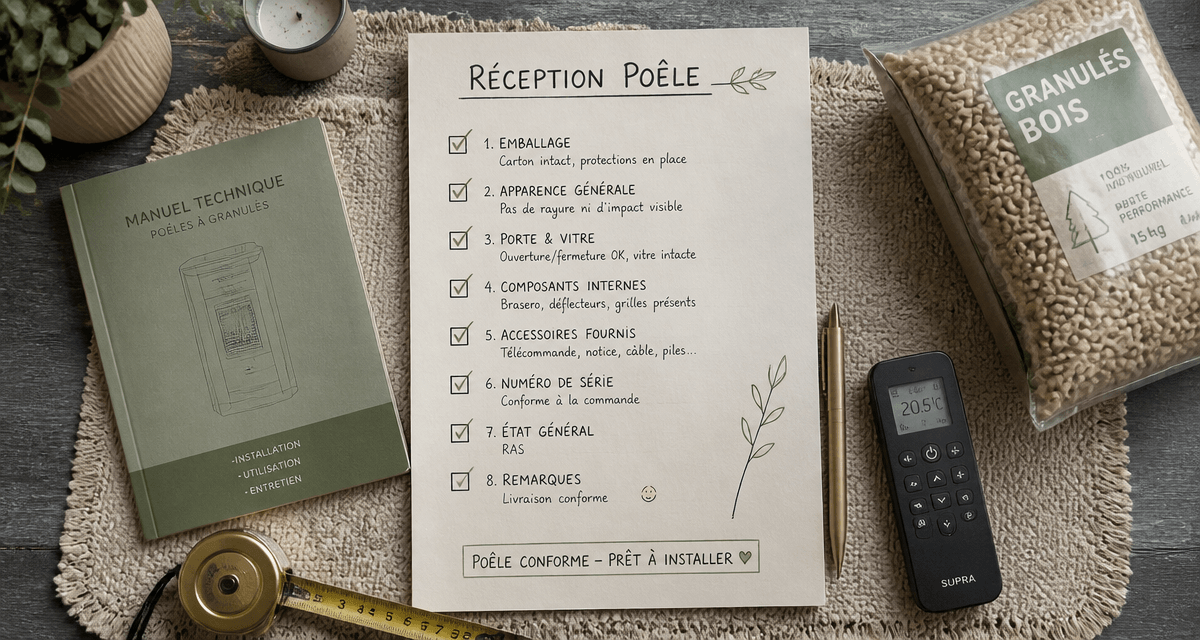 RÉCEPTION POÊLE
1. EMBALLAGE
Carton intact, protections en place
2. APPARENCE GÉNÉRALE
Pas de rayure ni d'impact visible
3. PORTE & VITRE
Ouverture/fermeture OK, vitre intacte
4. COMPOSANTS INTERNES
Brasero, déflecteurs, grilles présents
5. ACCESSOIRES FOURNIS
Télécommande, notice, câble, piles...
6. NUMÉRO DE SÉRIE
Conforme à la commande
7. ÉTAT GÉNÉRAL
RAS
8. REMARQUES
Livraison conforme
POÊLE CONFORME – PRÊT À INSTALLER
MANUEL TECHNIQUE
POÊLES À GRANULÉS
-INSTALLATION
-UTILISATION
-ENTRETIEN
GRANULÉS
BOIS
100%
PERFORMANCE
15kg
20.5°C
SUPRA